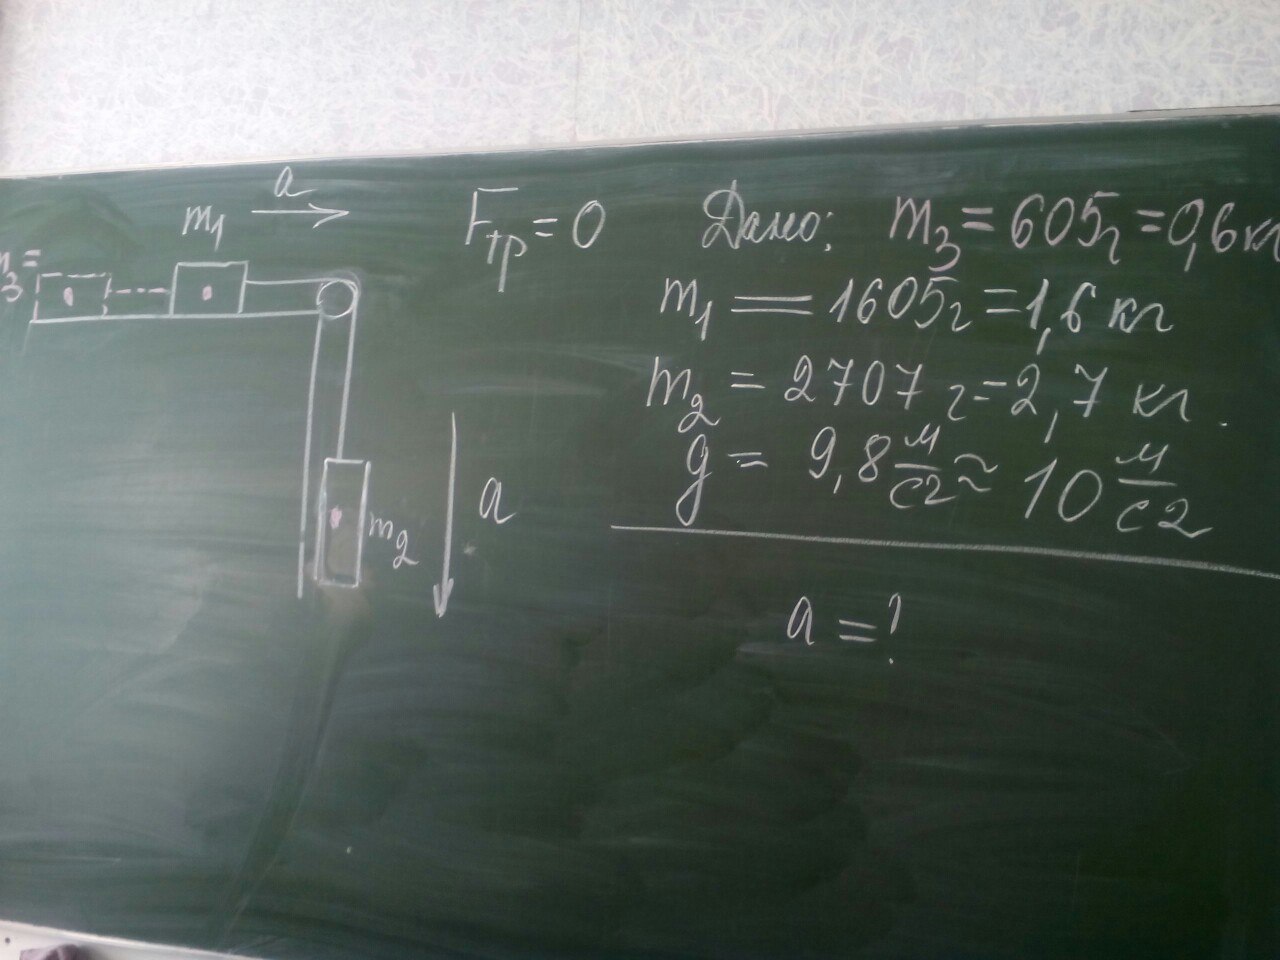 a
m₁
m₃ =
m₂
a
Fтр = 0
Дано: m₃ = 605г = 0,6 кг
m₁ = 1605г = 1,6 кг
m₂ = 2707г = 2,7 кг.
g = 9,8 м/с2 ≈ 10 м/с2
a = ?